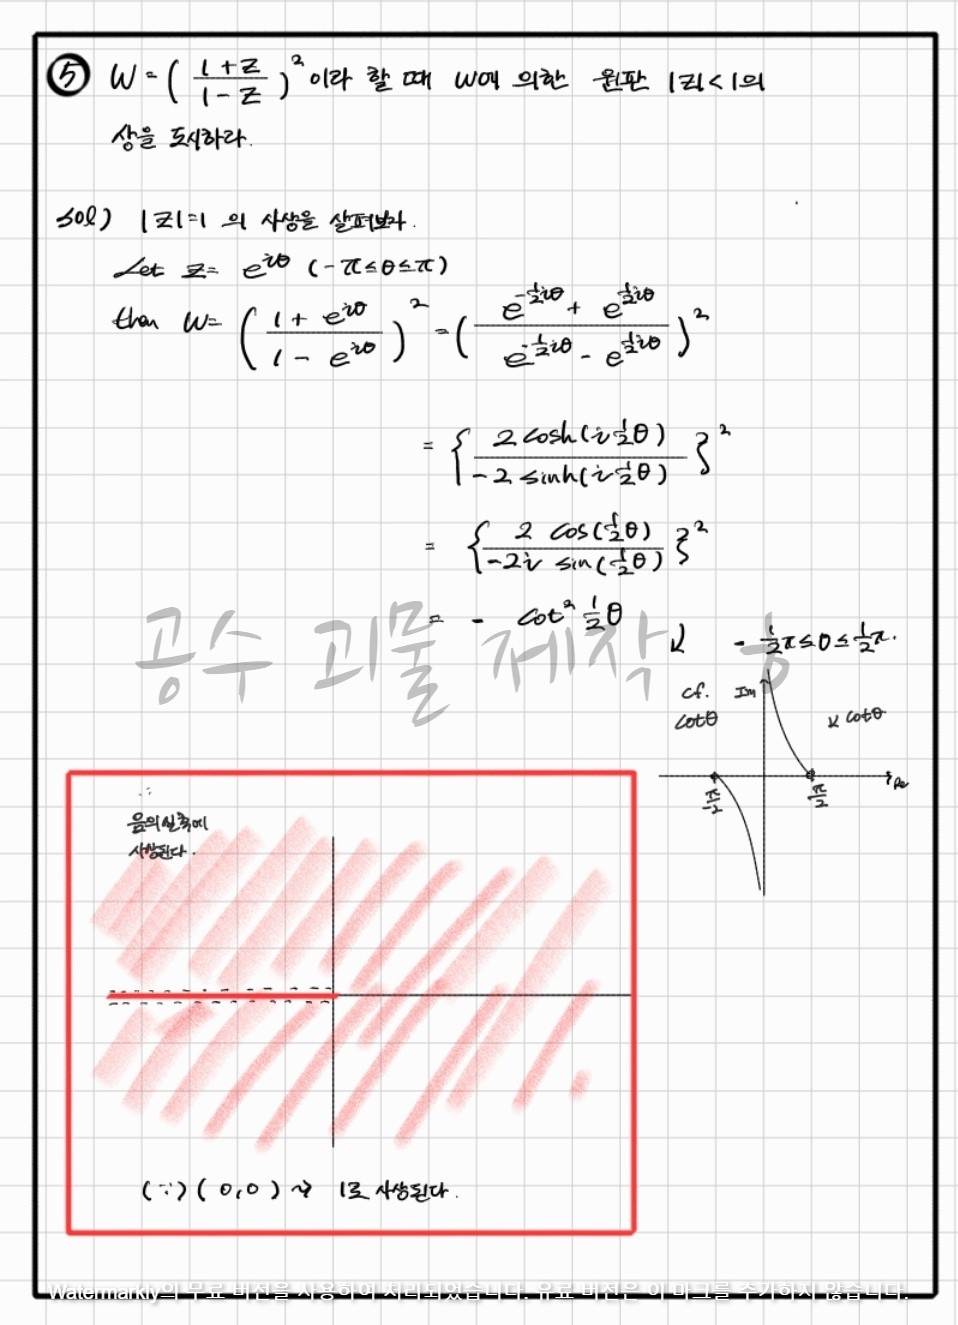 ⑤ W = ( (1+z)/(1-z) )² 이라 할 때 w에 의한 원판 |z|<1의
상을 도시하라.
sol) |z|=1 의 사상을 살펴보자.
Let z= e^{iθ} (-π≤θ≤π)
then w= ( (1 + e^{iθ})/(1 - e^{iθ}) )² = ( (e^{-½iθ} + e^{½iθ})/(e^{-½iθ} - e^{½iθ}) )²
= { (2 cosh(i½θ))/(-2 sinh(i½θ)) }²
= { (2 cos(½θ))/(-2i sin(½θ)) }²
= - cot² ½θ
공수 괴물 제작
- ½π≤θ≤½π.
cf. Im
cotθ
cotθ
Re
-π/2 π/2
∴
음의 실축에
사상된다.
(∵) (0,0) ⇝ 1로 사상된다.
Watermarkly의 무료 버전을 사용하여 처리되었습니다. 유료 버전은 이 마크를 추가하지 않습니다.